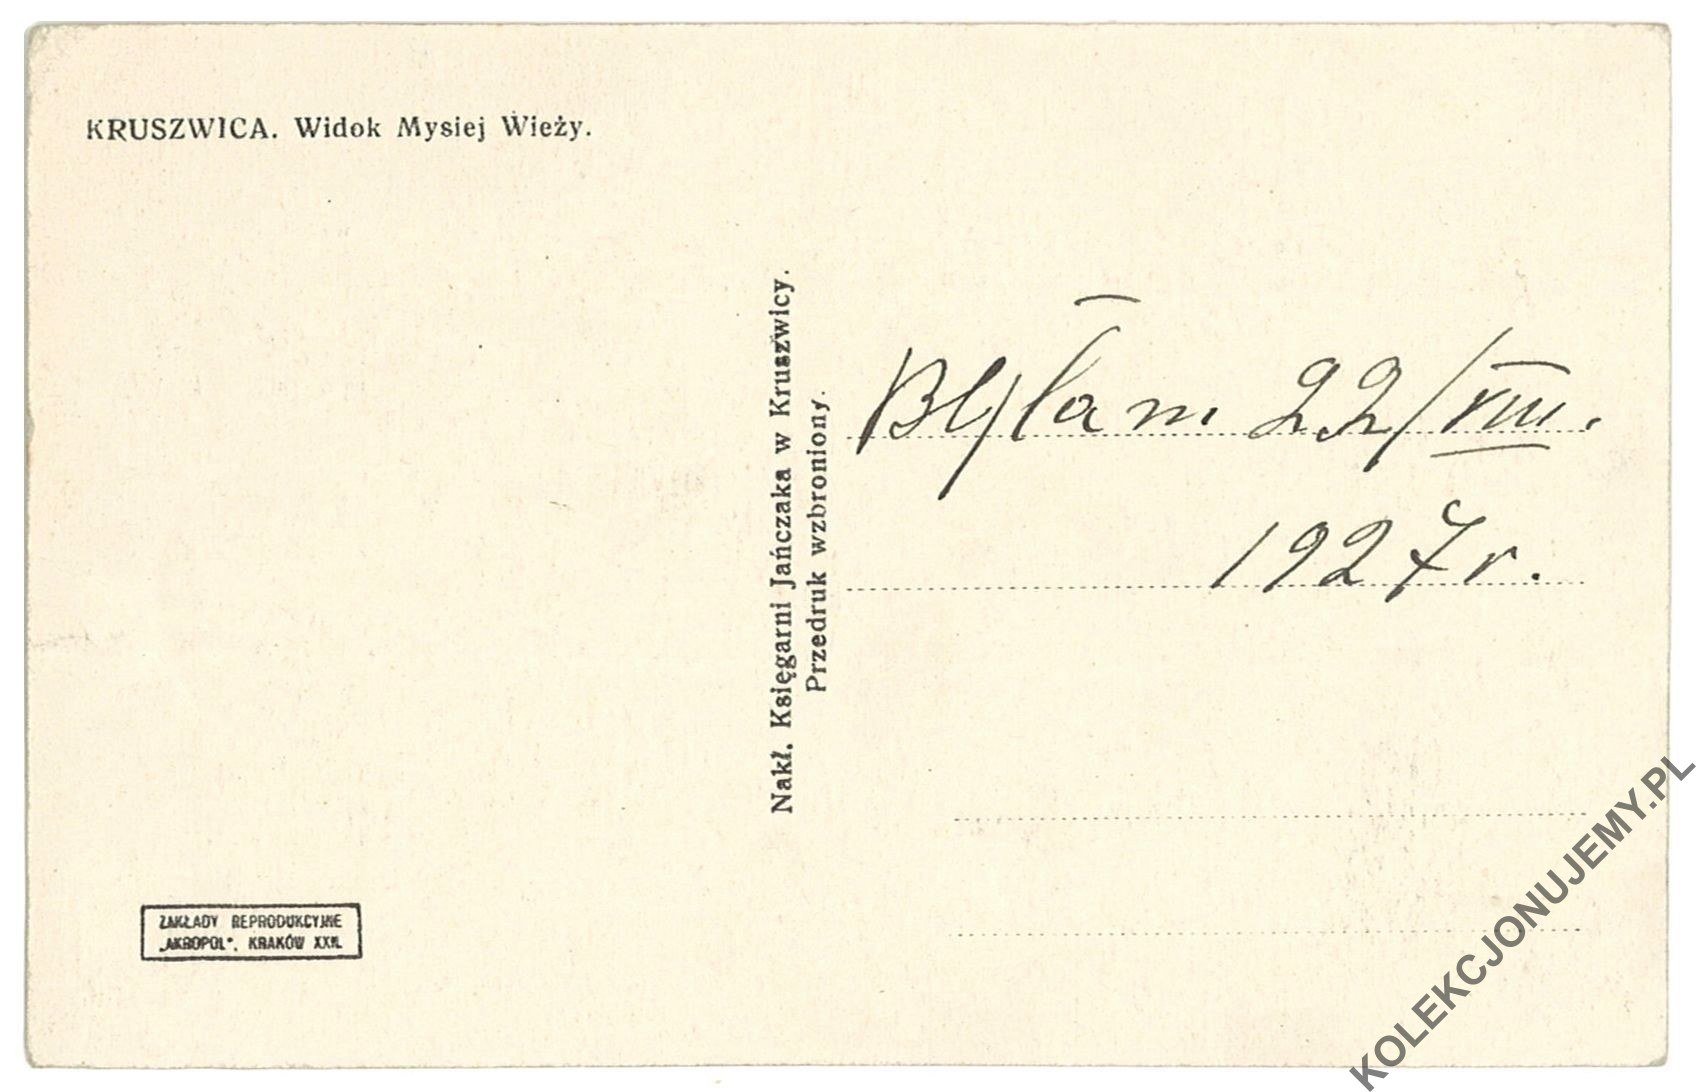 KRUSZWICA. Widok Mysiej Wieży.
Nakł. Księgarni Jańczaka w Kruszwicy.
Przedruk wzbroniony.
Byłam 22/VIII.
1927 r.
ZAKŁADY REPRODUKCYJNE
„AKROPOL”, KRAKÓW
KOLEKCJONUJEMY.PL